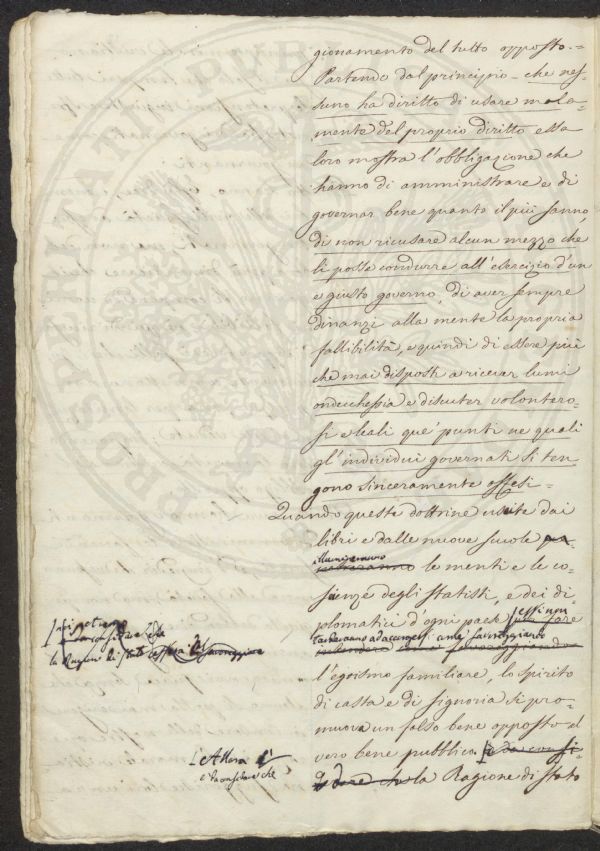 gionamento del tutto opposto. -
Partendo dal principio - che nes-
suno ha diritto di usare mala-
mente del proprio diritto essa
loro mostra l'obbligazione che
hanno di amministrare e di
governar bene quanto il più sanno,
di non ricusare alcun mezzo che
li possa condurre all'esercizio d'un
e giusto governo, di aver sempre
dinanzi alla mente la propria
fallibilità, e quindi di essere più
che mai disposti a ricever lumi
ondecchessia e discuter volontero-
si e leali que' punti ne quali
gl'individui governati si ten
gono sinceramente offesi -
Quando queste dottrine uscite dai
libri e dalle nuove scuole
illumineranno
le menti e le co-
scienze degli statisti, e dei di
plomatici d'ogni paese essi non
tarderanno ad accorgersi come favoreggiando
l'egoismo familiare, lo spirito
di casta e di signoria si pro-
muova un falso bene opposto al
vero bene pubblico e da consi-
derare che la Ragione di stato
la Ragione di stato
Allora è
e da considerare che
PROSPERITATI PUBLICAE